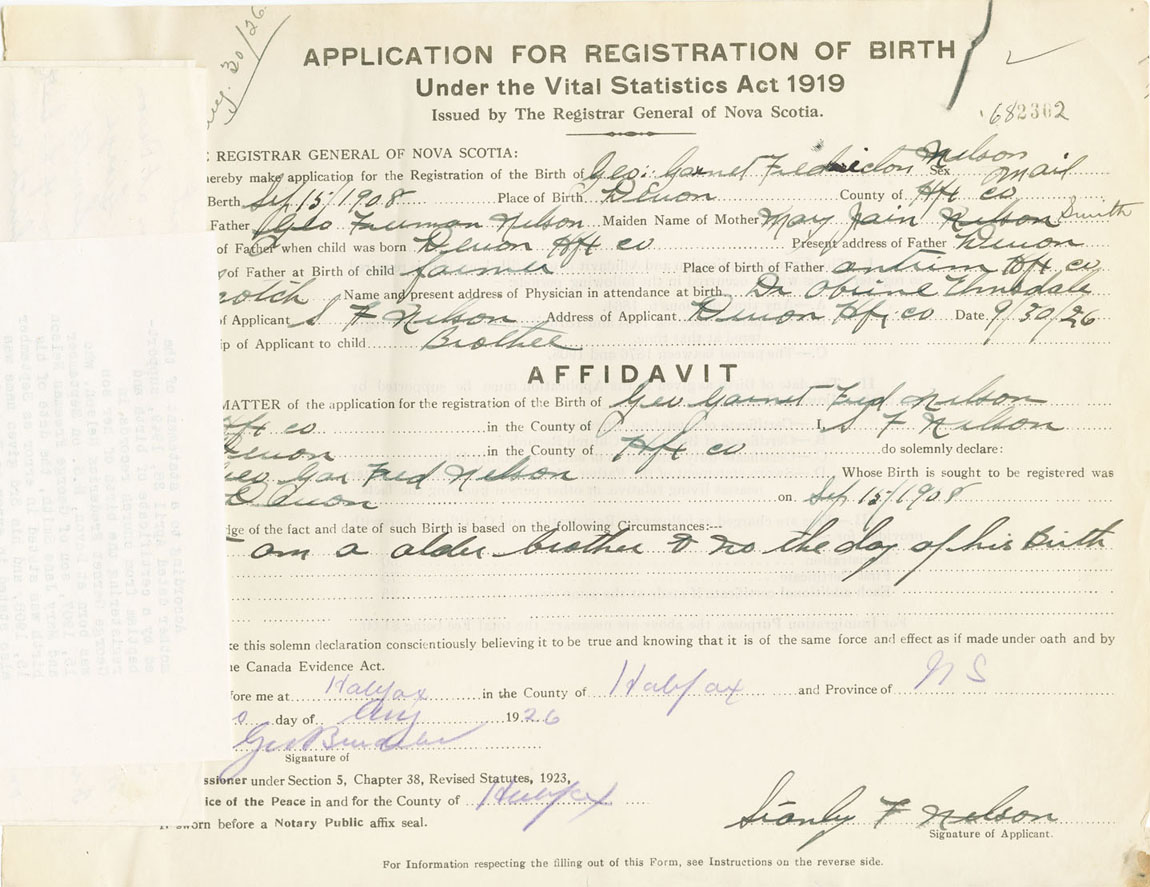 Aug. 30/26
APPLICATION FOR REGISTRATION OF BIRTH
Under the Vital Statistics Act 1919
Issued by The Registrar General of Nova Scotia.
682302
REGISTRAR GENERAL OF NOVA SCOTIA:
hereby make application for the Registration of the Birth of Geo. Garnet Fredrickson Nelson Sex mail
Berth Sep 15/1908 Place of Birth Devon County of Hfx co
Father Geo Freeman Nelson Maiden Name of Mother Mary Jain Nelson Smith
of Father when child was born Devon Hfx co Present address of Father Devon
of Father at Birth of child farmer Place of birth of Father antrim Hfx co
cotch Name and present address of Physician in attendance at birth Dr Obrine Elmsdale
of Applicant S F Nelson Address of Applicant Devon Hfx co Date 9/30/26
ip of Applicant to child Brother
AFFIDAVIT
MATTER of the application for the registration of the Birth of Geo Garnet Fred Nelson
Hfx co in the County of I, S F Nelson
Devon in the County of Hfx co do solemnly declare:
Geo Gar Fred Nelson Whose Birth is sought to be registered was
Devon on Sep 15/1908
dge of the fact and date of such Birth is based on the following Circumstances:--
I am a older brother & no the day of his Birth
ke this solemn declaration conscientiously believing it to be true and knowing that it is of the same force and effect as if made under oath and by
he Canada Evidence Act.
fore me at Halifax in the County of Halifax and Province of N S
day of Aug 1926
Signature of
ssioner under Section 5, Chapter 38, Revised Statutes, 1923,
ice of the Peace in and for the County of Halifax
If sworn before a Notary Public affix seal.
Stanly F Nelson
Signature of Applicant.
For Information respecting the filling out of this Form, see Instructions on the reverse side.